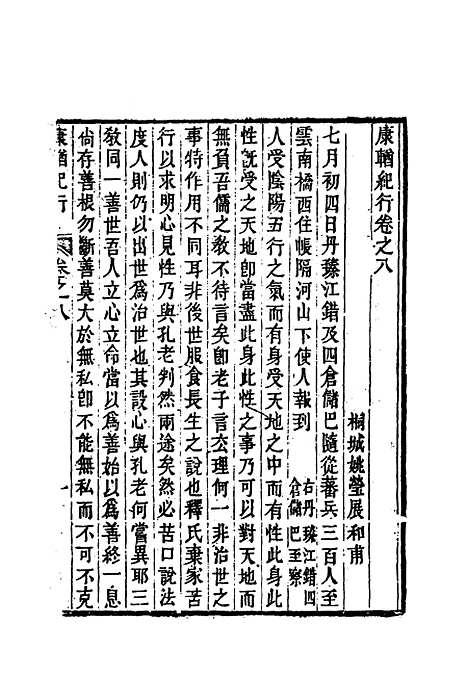 康輶紀行卷之八
桐城姚瑩展和甫
七月初四日丹臻江錯及四倉儲巴隨從蕃兵三百人至
雲南橋西住帳隔河山下使人報到右丹臻江錯四倉儲巴至察
人受陰陽五行之氣而有身受天地之中而有性此身此
性旣受之天地卽當盡此身此性之事乃可以對天地而
無負吾儒之敎不待言矣卽老子言玄理何一非治世之
事特作用不同耳非後世服食長生之說也釋氏棄家苦
行以求明心見性乃與孔老判然兩途矣然必苦口說法
度人則仍以出世爲治世也其設心與孔老何嘗異耶三
敎同一善世吾人立心立命當以爲善始以爲善終一息
尙存善根勿斷善莫大於無私卽不能無私而不可不克
康輶紀行
卷之八
一